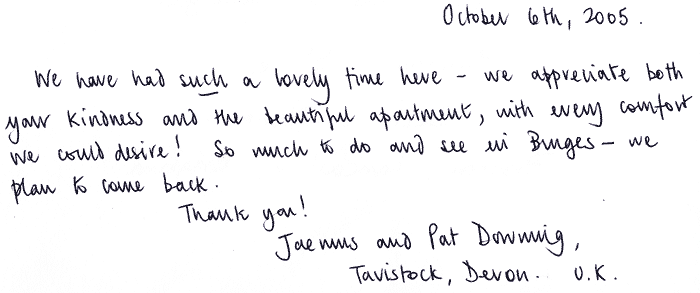 October 6th, 2005.
We have had such a lovely time here - we appreciate both
your kindness and the beautiful apartment, with every comfort
we could desire! So much to do and see in Bruges - we
plan to come back.
Thank you!
and Pat Downing,
Tavistock, Devon. U.K.